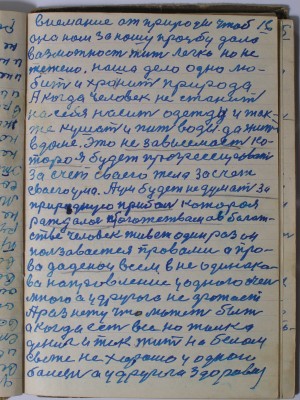 Внемание от природи чтоб 16
оно нам за нашу прозбу дало
вазможност жит легко но не
тежело. наша дело одно лю-
бит и хранит природа
А когда человек не станит
на себя носит одежди и так-
же кушат и пит води да жит
в доме. Это не зависемаст ко-
торая будет прогрессироват
за счет своего тела за счет
своего ума. А ум будет не думат за
природную прибил которая
в багат-
стве человек живет один раз он
ползавается правами а про-
ва даденои всем в не одинака-
ва направление у одного очен
много а у другого не
А раз нету что может бит
а когда ест все но толка
и так жит на белом
свете не хорошо у одного
болеет а у другога здоровя